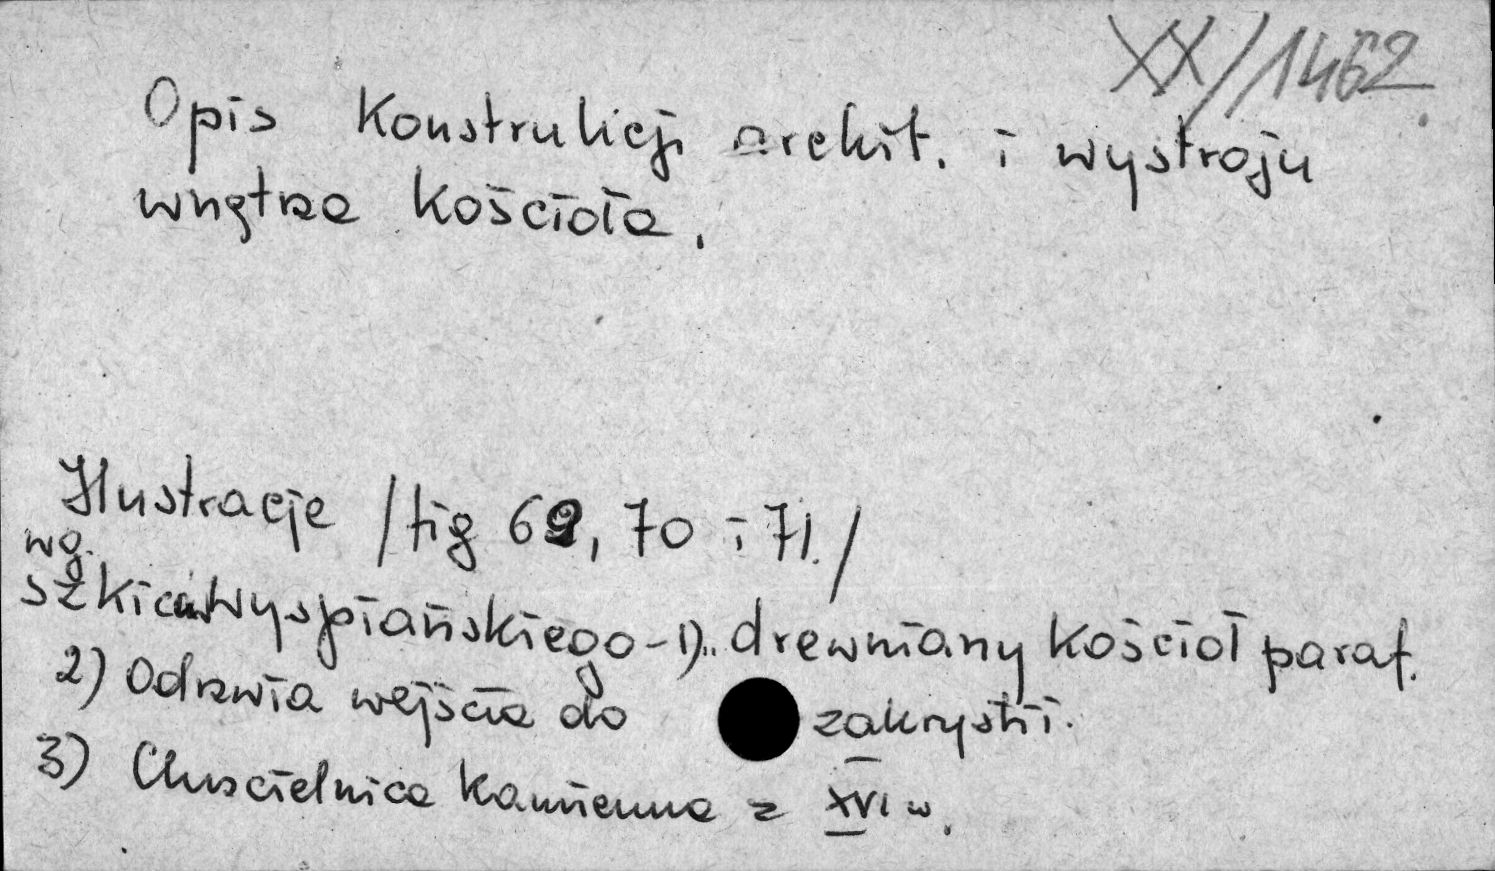 XX/1462
Opis konstrukcji archit. i wystroju
wnętrza kościoła.
Ilustracje /fig 69, 70 i 71./
wg.
szkiców Wyspiańskiego - 1).. drewniany kościoł paraf.
2) Odrzwia wejścia do zakrystii.
3) Chrzcielnica kamienna z XVI w.